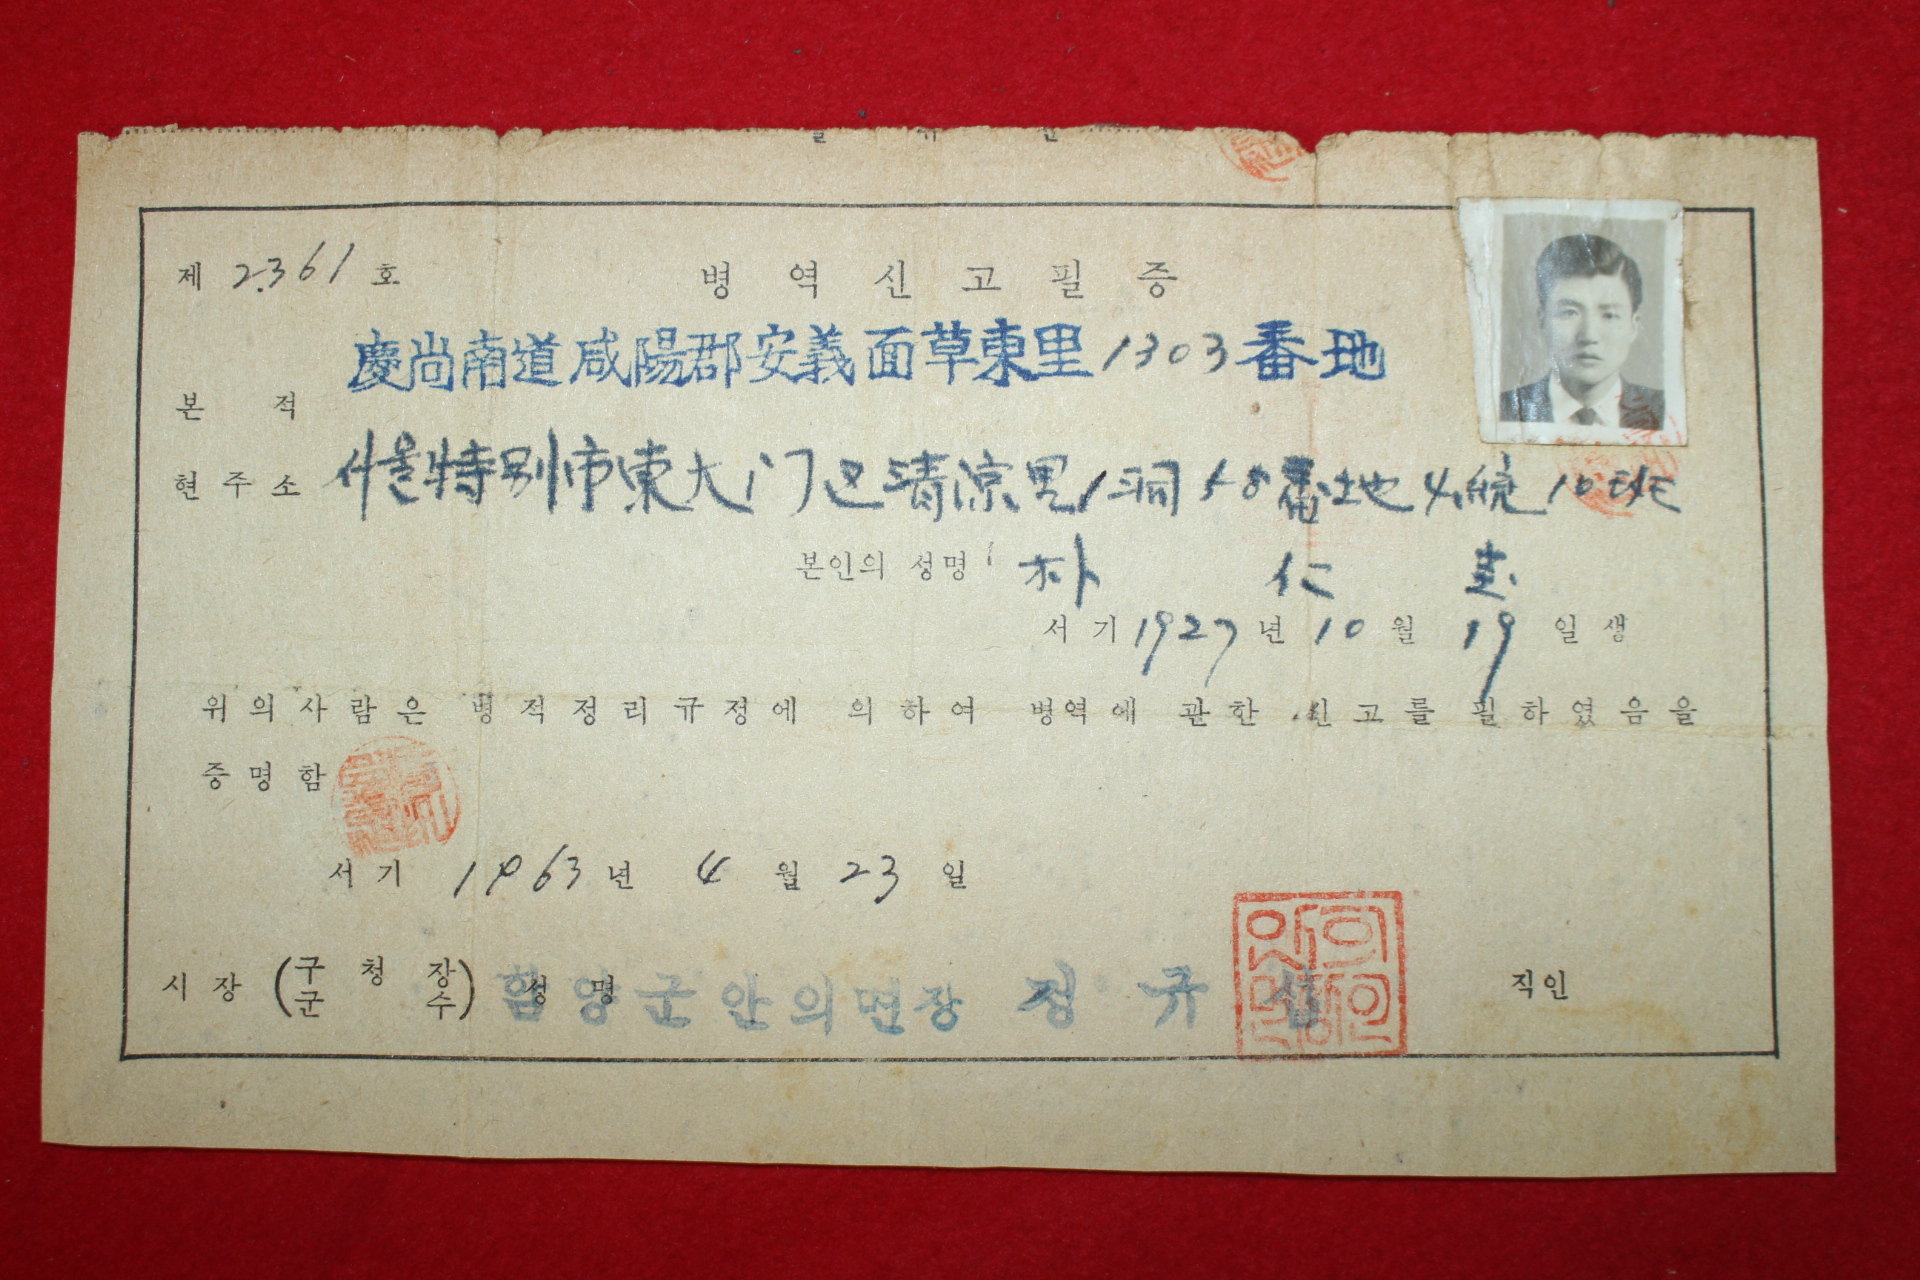 제 2361 호
병역신고필증
慶尙南道咸陽郡安義面草東里1303番地
본적
현주소 서울特別市東大门区清凉里1洞58番地4統10班
본인의 성명 朴仁
서기 1927년 10월 19일생
위의 사람은 병적정리규정에 의하여 병역에 관한 신고를 필하였음을
증명함
서기 1963년 4월 23일
시장 (구청장 군수) 성명 함양군안의면장 정규 직인